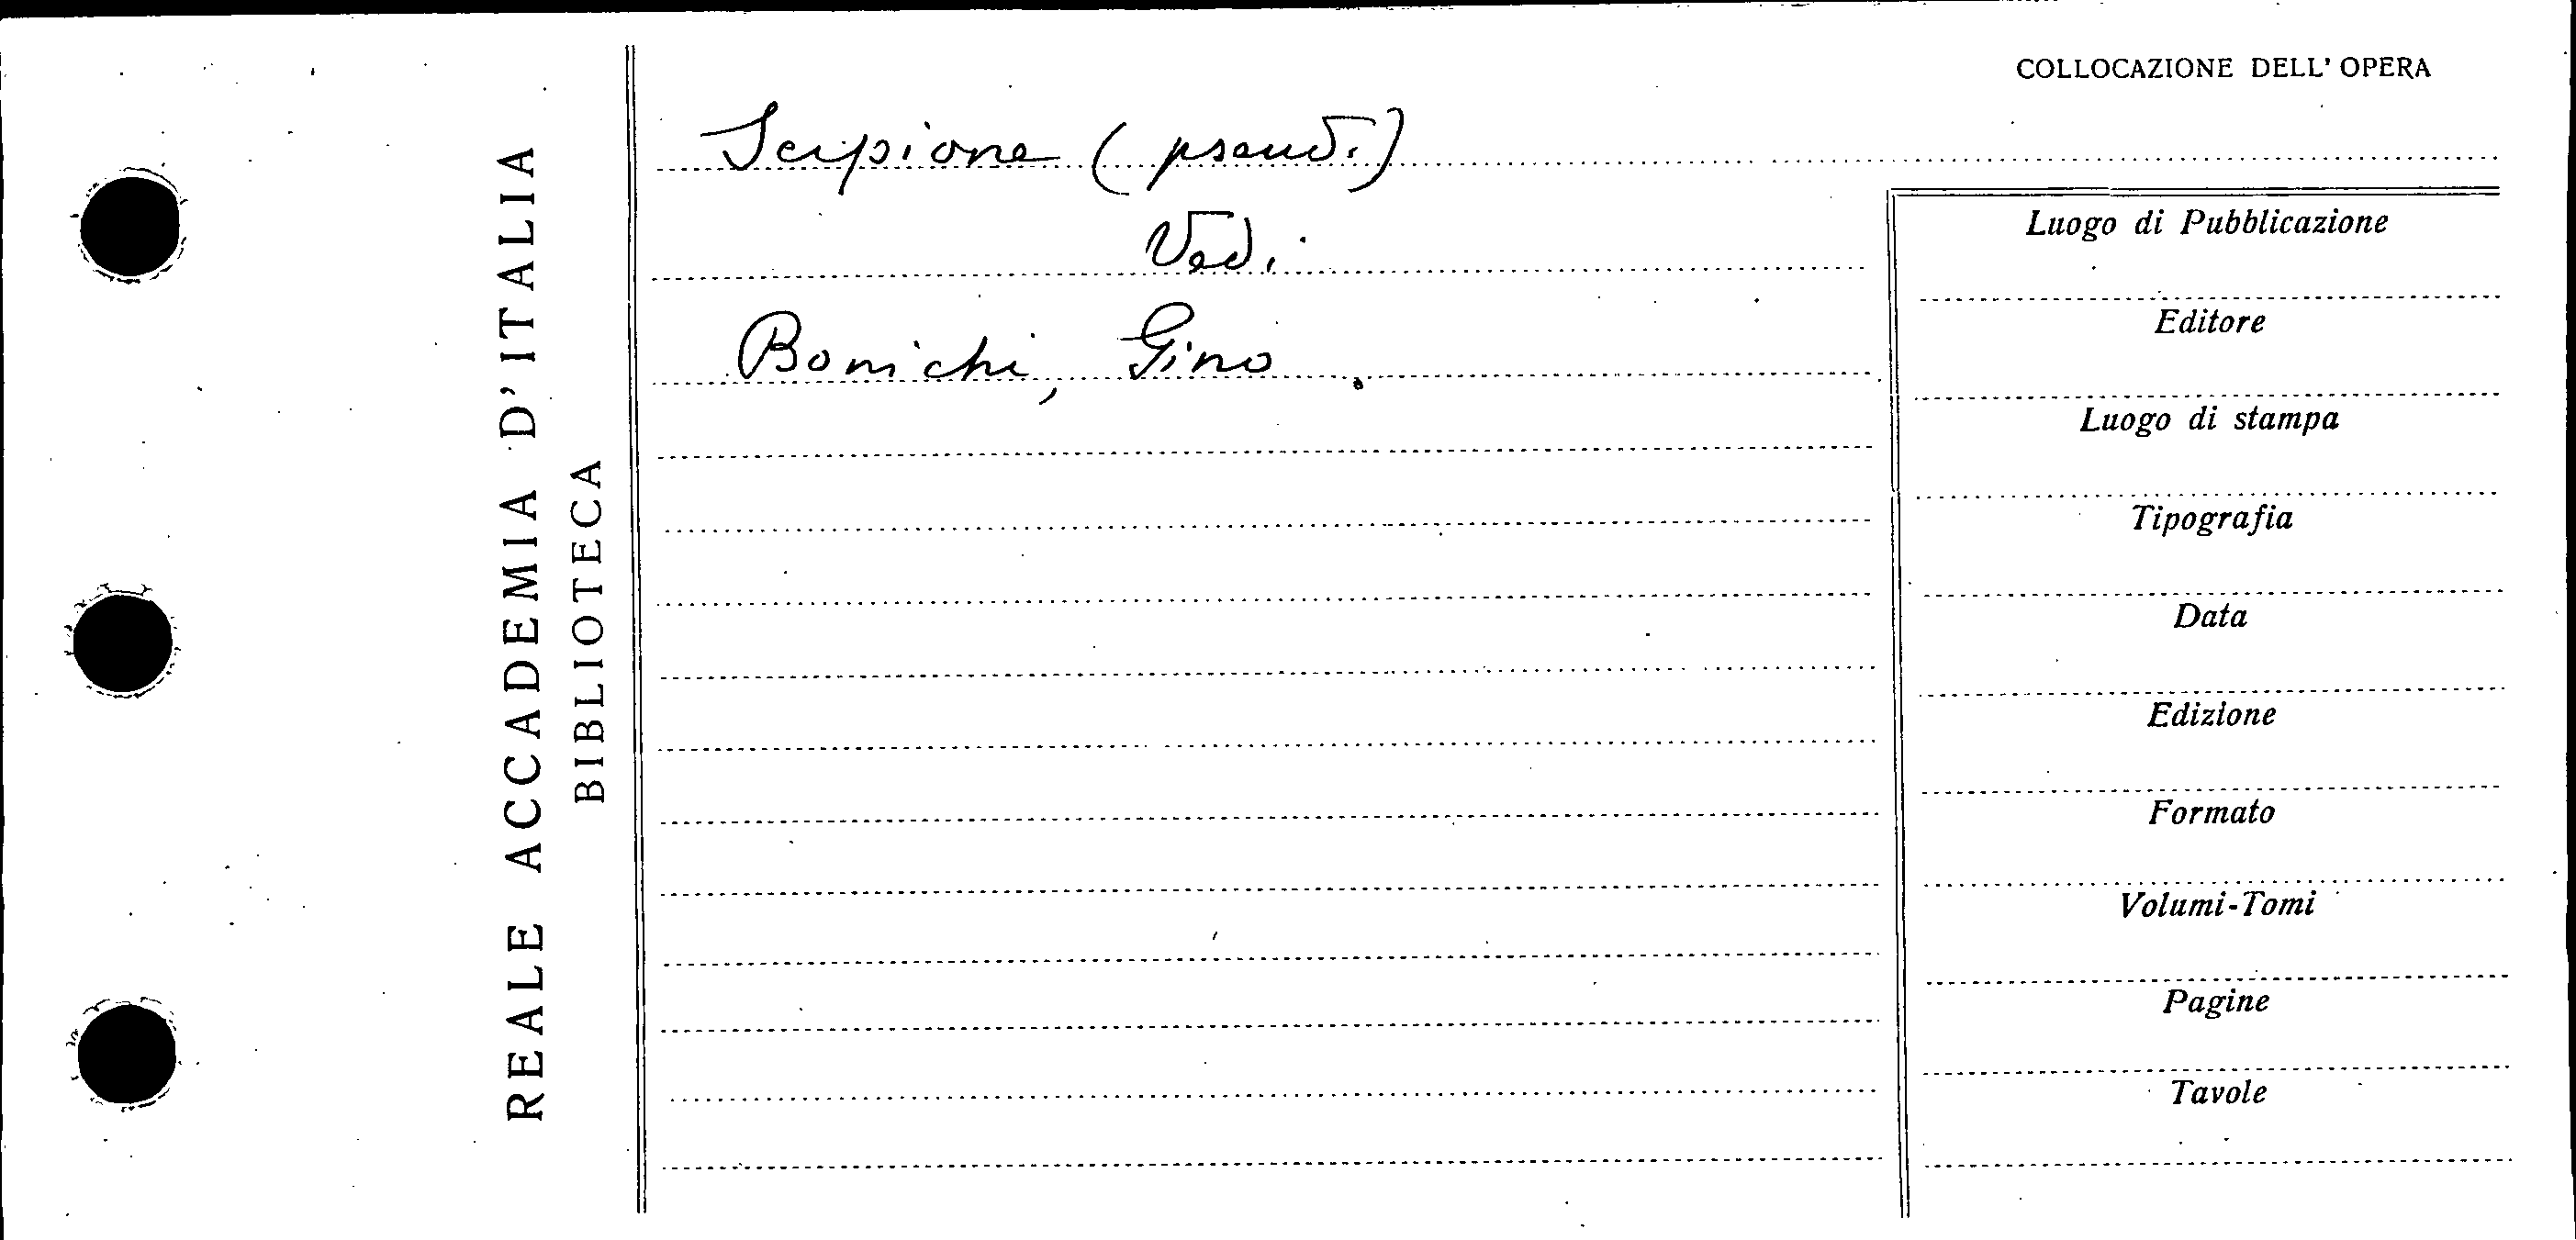 REALE ACCADEMIA D'ITALIA
BIBLIOTECA
COLLOCAZIONE DELL' OPERA
Scipione (pseud.)
Vedi
Bonichi, Gino.
Luogo di Pubblicazione
Editore
Luogo di stampa
Tipografia
Data
Edizione
Formato
Volumi-Tomi
Pagine
Tavole